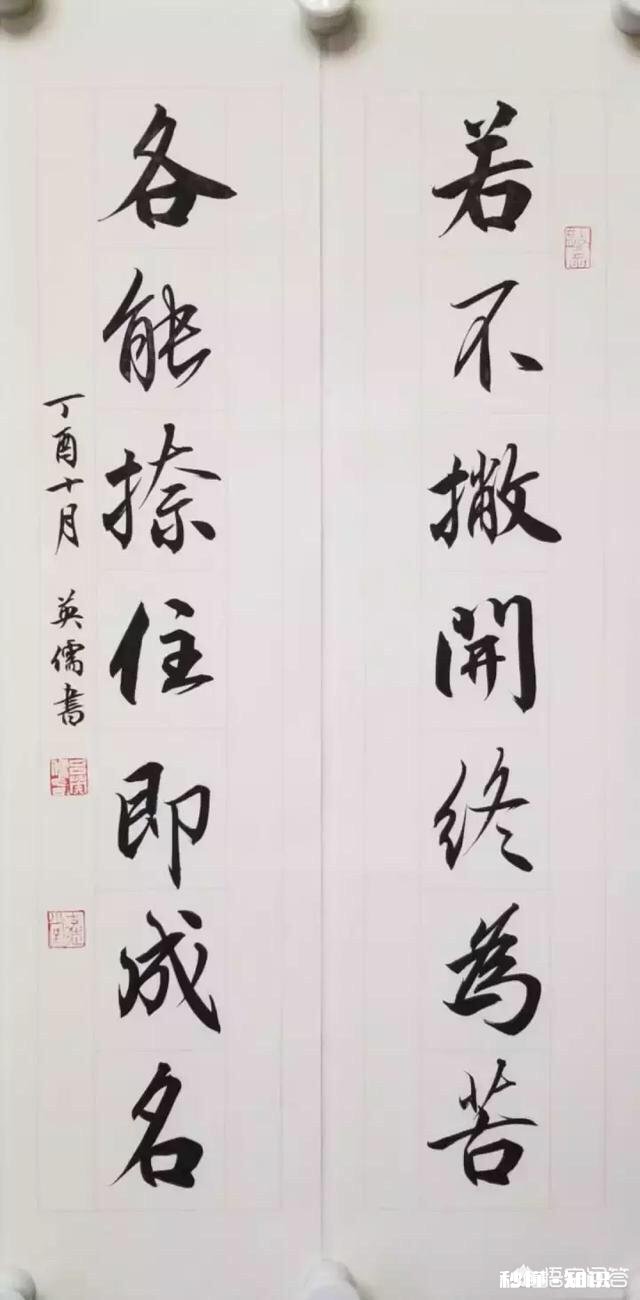 若不撇開終為苦
各能捺住即成名
丁酉十月 英儒書
悟空问答